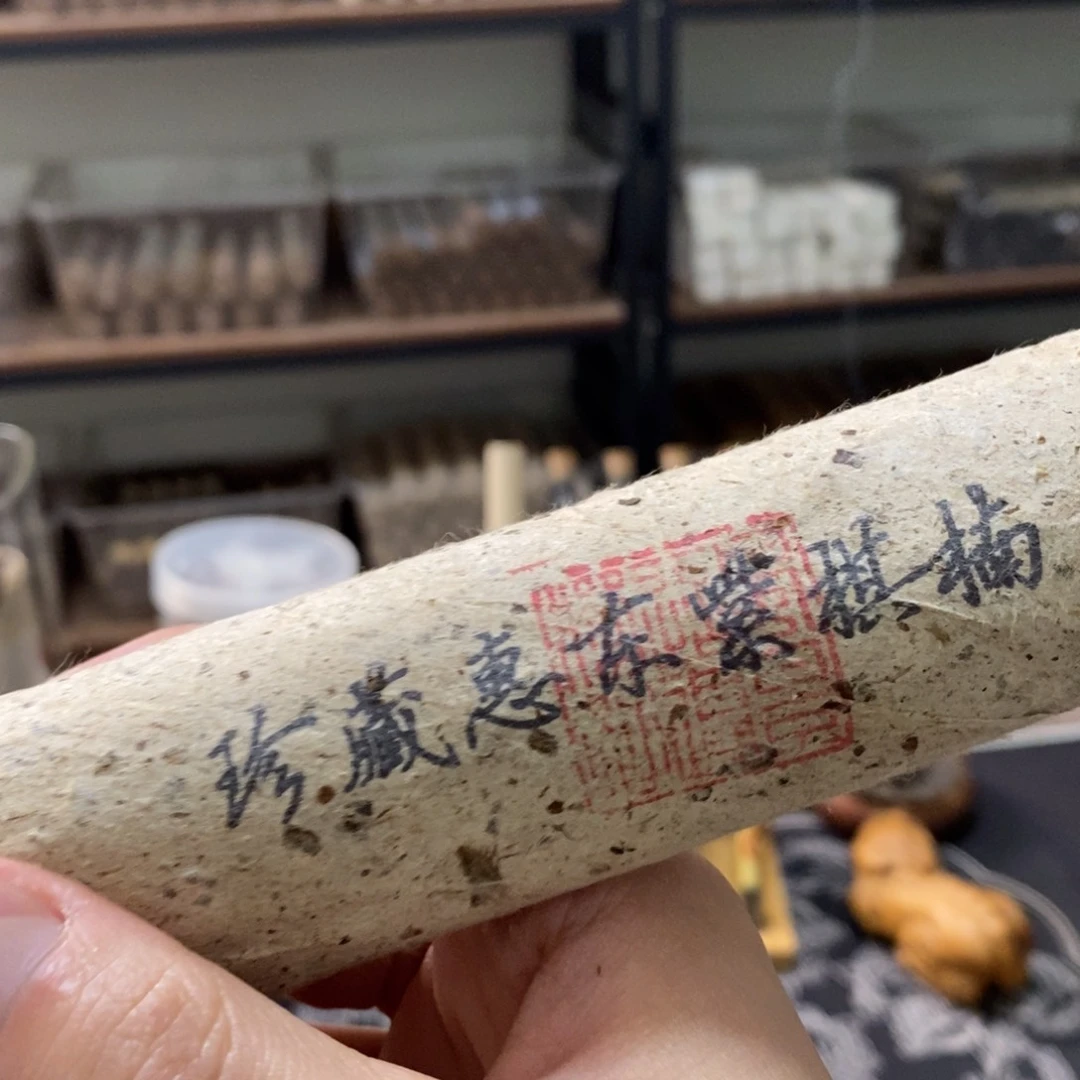 珍藏惠东紫棋楠